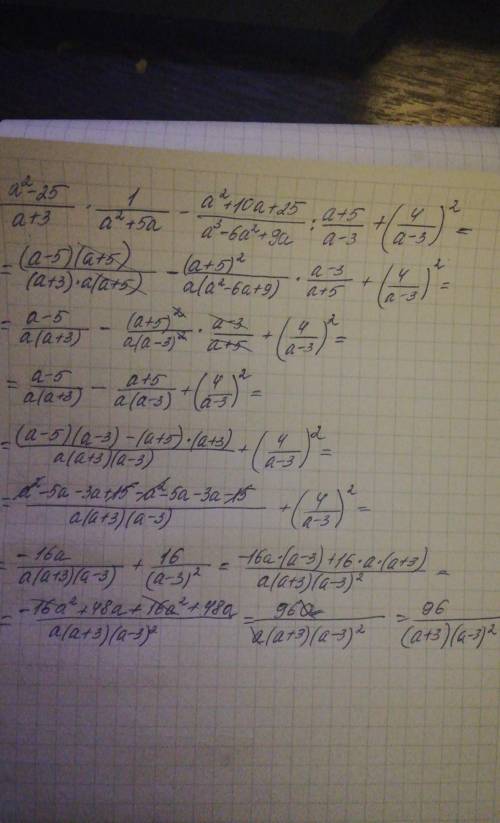 (a²-25)/(a+3) · 1/(a²+5a) - (a²+10a+25)/(a³-6a²+9a) : (a+5)/(a-3) + (4/(a-3))² =
= (a-5)(a+5)/((a+3)·a(a+5)) - (a+5)²/(a(a²-6a+9)) · (a-3)/(a+5) + (4/(a-3))² =
= (a-5)/(a(a+3)) - (a+5)²/(a(a-3)²) · (a-3)/(a+5) + (4/(a-3))² =
= (a-5)/(a(a+3)) - (a+5)/(a(a-3)) + (4/(a-3))² =
= ((a-5)(a-3)-(a+5)·(a+3))/(a(a+3)(a-3)) + (4/(a-3))² =
= (a²-5a-3a+15-a²-5a-3a-15)/(a(a+3)(a-3)) + (4/(a-3))² =
= -16a/(a(a+3)(a-3)) + 16/(a-3)² = (-16a·(a-3)+16·a·(a+3))/(a(a+3)(a-3)²) =
= (-16a²+48a+16a²+48a)/(a(a+3)(a-3)²) = 96a/(a(a+3)(a-3)²) = 96/((a+3)(a-3)²)